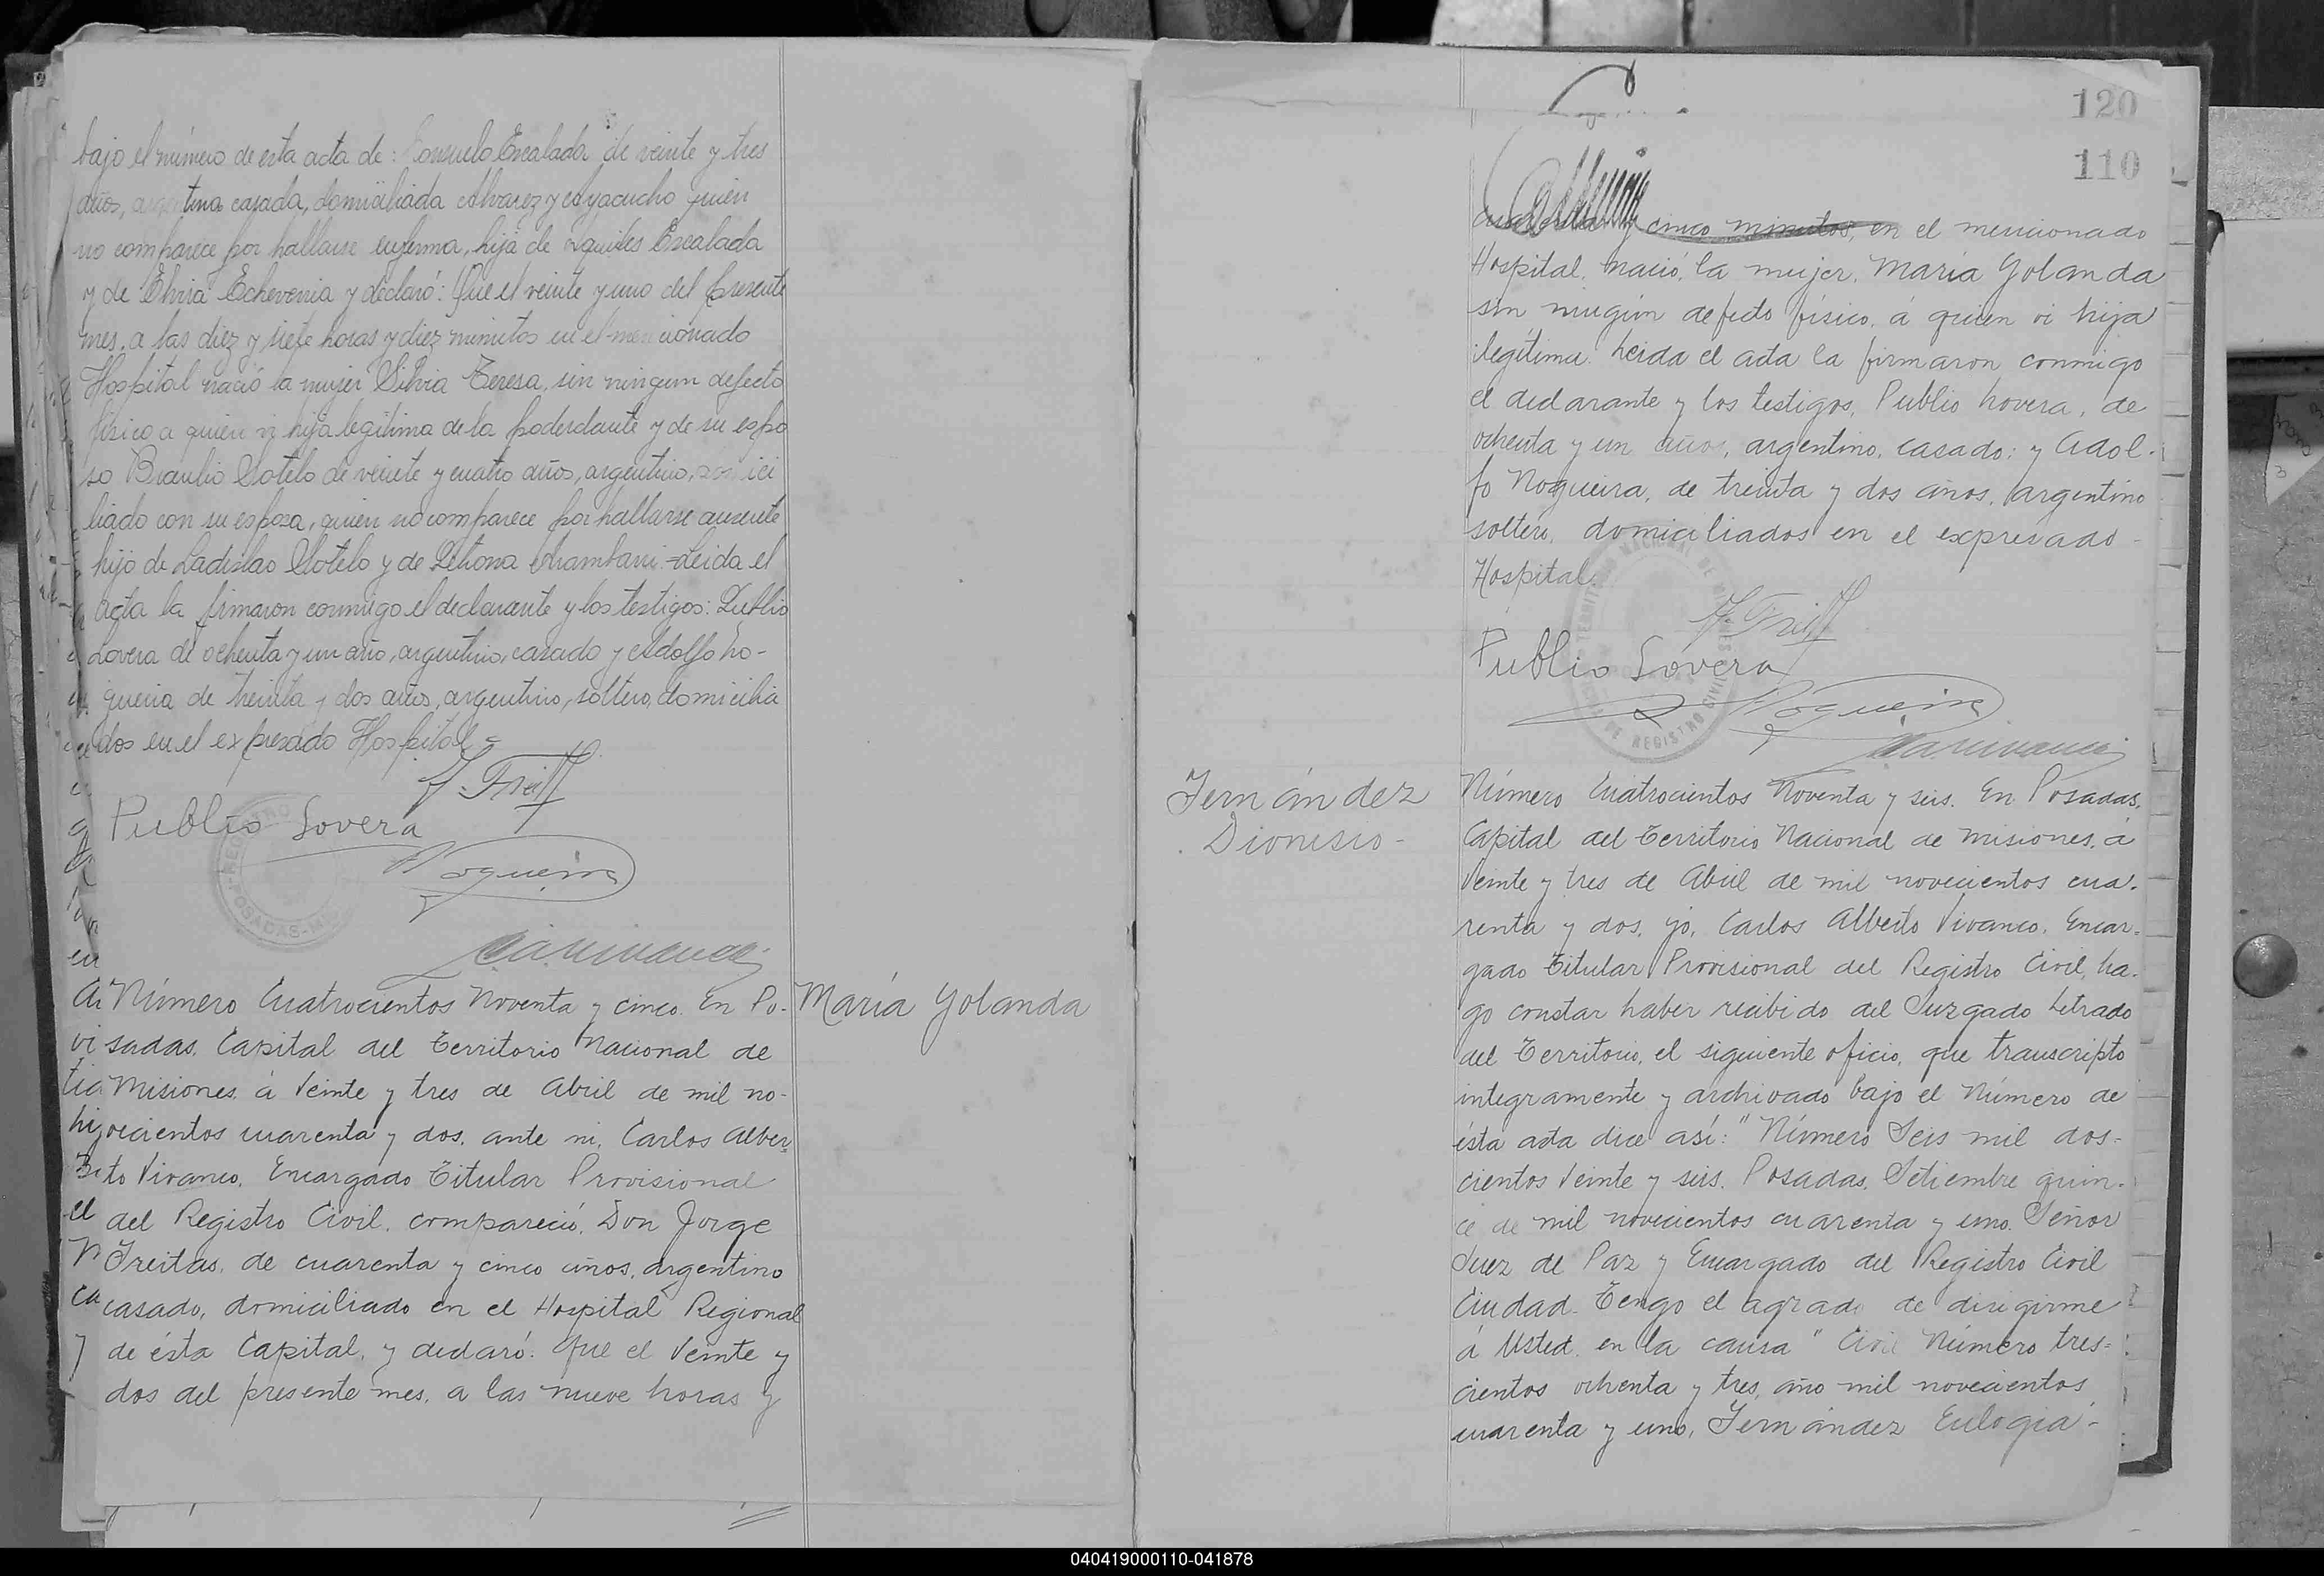 bajo el número de esta acta de: Consuelo Escalada de veinte y tres
años, argentina casada, domiciliada Alvarez y Ayacucho quien
no comparece por hallarse enferma, hija de Aquiles Escalada
y de Elvia Echeverria y declaró: Que el veinte y uno del presente
mes, a las diez y siete horas y diez minutos en el mencionado
Hospital nació la mujer Silvia Teresa, sin ningun defecto
físico a quien vi hija legítima de la poderdante y de su espo
so Braulio Sotelo de veinte y cuatro años, argentino, domici
liado con su esposa, quien no comparece por hallarse ausente
hijo de Ladislao Sotelo y de Petrona -Leida el
acta la firmaron conmigo el declarante y los testigos: Publio
Lovera de ochenta y un año, argentino, casado y Adolfo No-
gueria de treinta y dos años, argentino, soltero, domicilia
dos en el expresado Hospital=
Publio Lovera
Nogueira
Número Cuatrocientos Noventa y cinco. En Po-
María Yolanda
sadas, Capital del Territorio Nacional de
Misiones, á Veinte y tres de Abril de mil no-
vecientos cuarenta y dos, ante mi, Carlos Alber-
to Vivanco, Encargado Titular Provisional
del Registro Civil, compareció, Don Jorge
Freitas, de cuarenta y cinco años, argentino
casado, domiciliado en el Hospital Regional
de ésta Capital, y declaró: Que el Veinte y
dos del presente mes, a las nueve horas y
120
110
cinco minutos, en el mencionado
Hospital, nació, la mujer, María Yolanda
sin ningún defecto físico, á quien vi hija
ilegítima. Leida el acta la firmaron conmigo
el declarante y los testigos, Publio Lovera, de
ochenta y un años, argentino, casado; y Adol-
fo Nogueira, de treinta y dos años, argentino
soltero, domiciliados en el expresado -
Hospital.
Publio Lovera
Nogueira
Fernández
Dionisio -
Número Cuatrocientos Noventa y seis. En Posadas,
Capital del Territorio Nacional de Misiones, á
Veinte y tres de Abril de mil novecientos cua-
renta y dos, yo, Carlos Alberto Vivanco, Encar-
gado Titular Provisional del Registro Civil, ha-
go constar haber recibido del Juzgado Letrado
del Territorio, el siguiente oficio, que transcripto
integramente y archivado bajo el Número de
ésta acta dice así: "Número Seis mil dos-
cientos Veinte y seis. Posadas, Setiembre quin-
ce de mil novecientos cuarenta y uno. Señor
Juez de Paz y Encargado del Registro Civil
Ciudad. Tengo el agrado de dirigirme
á Usted, en la causa "Civil Número tres-
cientos ochenta y tres, año mil novecientos
cuarenta y uno, Fernández Eulogia -
040419000110-041878